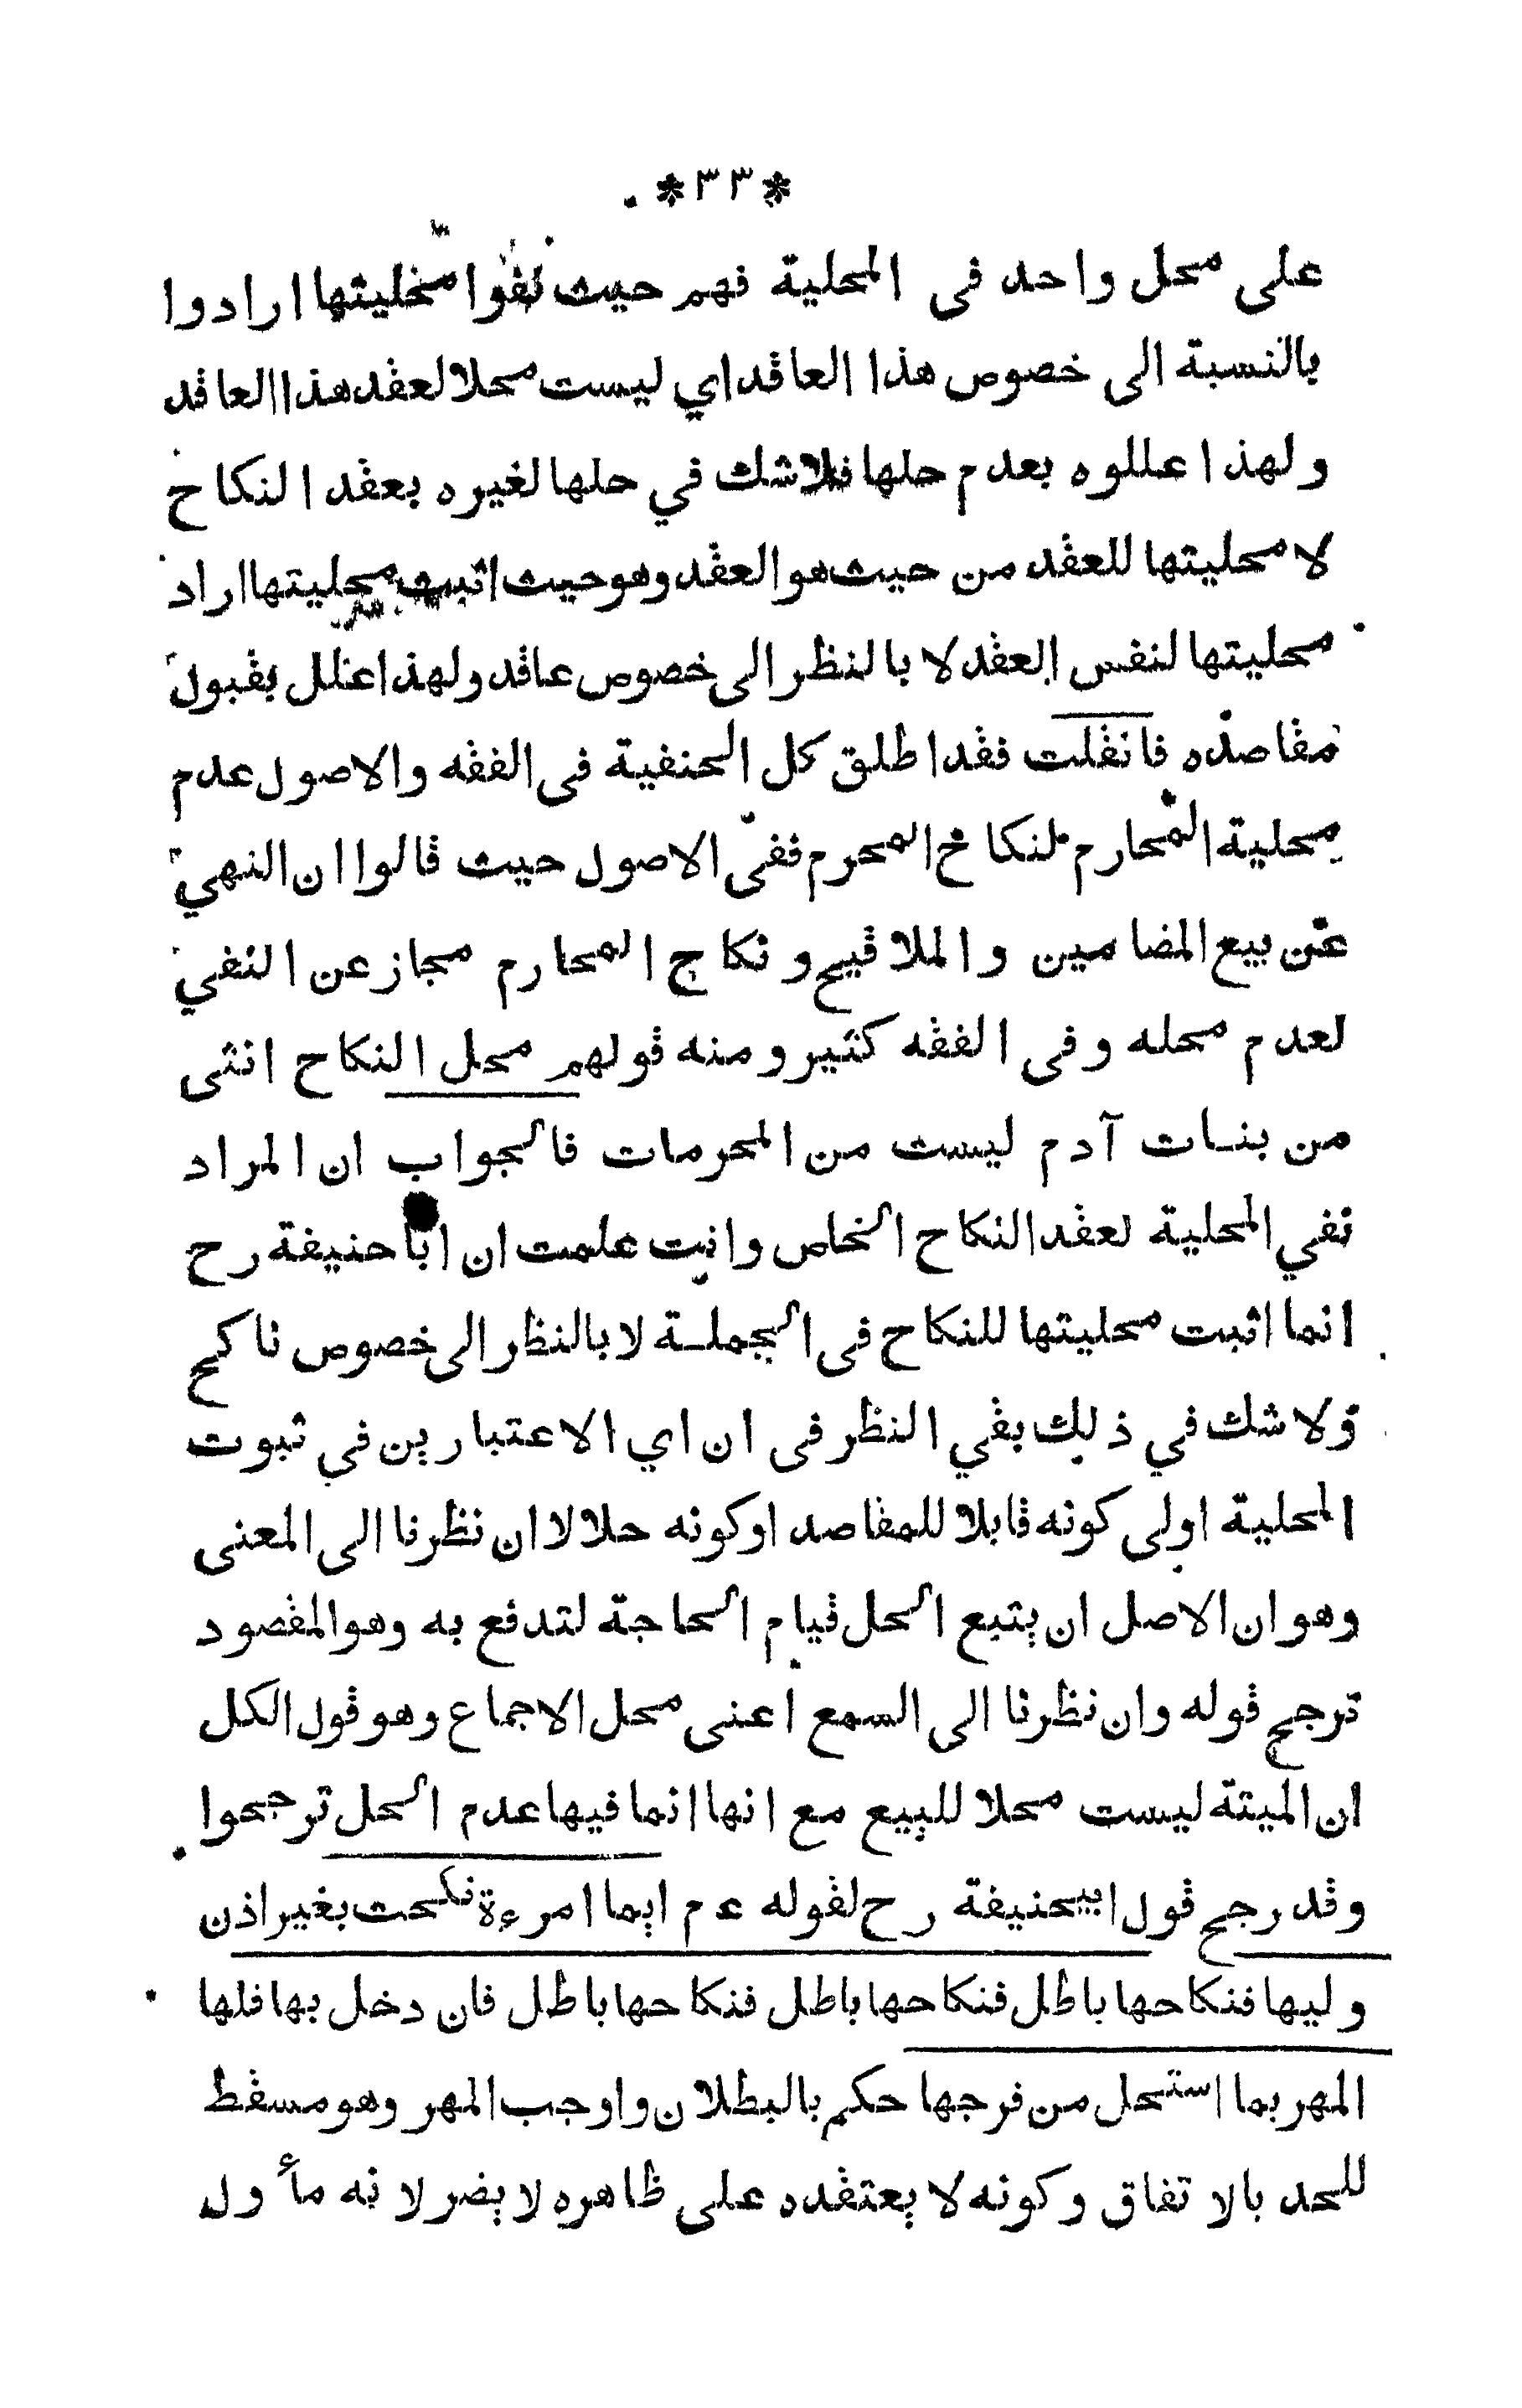 *٣٣*
على محل واحد في المحلية فهم حيث نفوا محليتها ارادوا
بالنسبة الى خصوص هذا العاقد اي ليست محلا لعقد هذا العاقد
ولهذا عللوه بعدم حلها فلا شك في حلها لغيره بعقد النكاح
لا محليتها للعقد من حيث هو العقد وهو حيث اثبت محليتها اراد
محليتها لنفس العقد لا بالنظر الى خصوص عاقد ولهذا علل بقبول
مقاصده فانقلت فقد اطلق كل الحنفية في الفقه والاصول عدم
محلية المحارم لنكاح المحرم ففي الاصول حيث قالوا ان النهي
عن بيع المضامين والملاقيح ونكاح المحارم مجاز عن النفي
لعدم محله وفي الفقه كثير ومنه قولهم محل النكاح انثى
من بنات آدم ليست من المحرمات فالجواب ان المراد
نفي المحلية لعقد النكاح الخاص وانت علمت ان ابا حنيفة رح
انما اثبت محليتها للنكاح في الجملة لا بالنظر الى خصوص ناكح
ولا شك في ذلك بقي النظر في ان اي الاعتبارين في ثبوت
المحلية اولى كونه قابلا للمقاصد او كونه حلالا ان نظرنا الى المعنى
وهو ان الاصل ان يتبع الحل قيام الحاجة لتدفع به وهو المقصود
ترجح قوله وان نظرنا الى السمع اعني محل الاجماع وهو قول الكل
ان الميتة ليست محلا للبيع مع انها انما فيها عدم الحل ترجحوا
وقد رجح قول ابيحنيفة رح لقوله عم ايما امرءة نكحت بغير اذن
وليها فنكاحها باطل فنكاحها باطل فنكاحها باطل فان دخل بها فلها
المهر بما استحل من فرجها حكم بالبطلان واوجب المهر وهو مسقط
للحد بالاتفاق وكونه لا يعتقده على ظاهره لا يضر لانه مأول